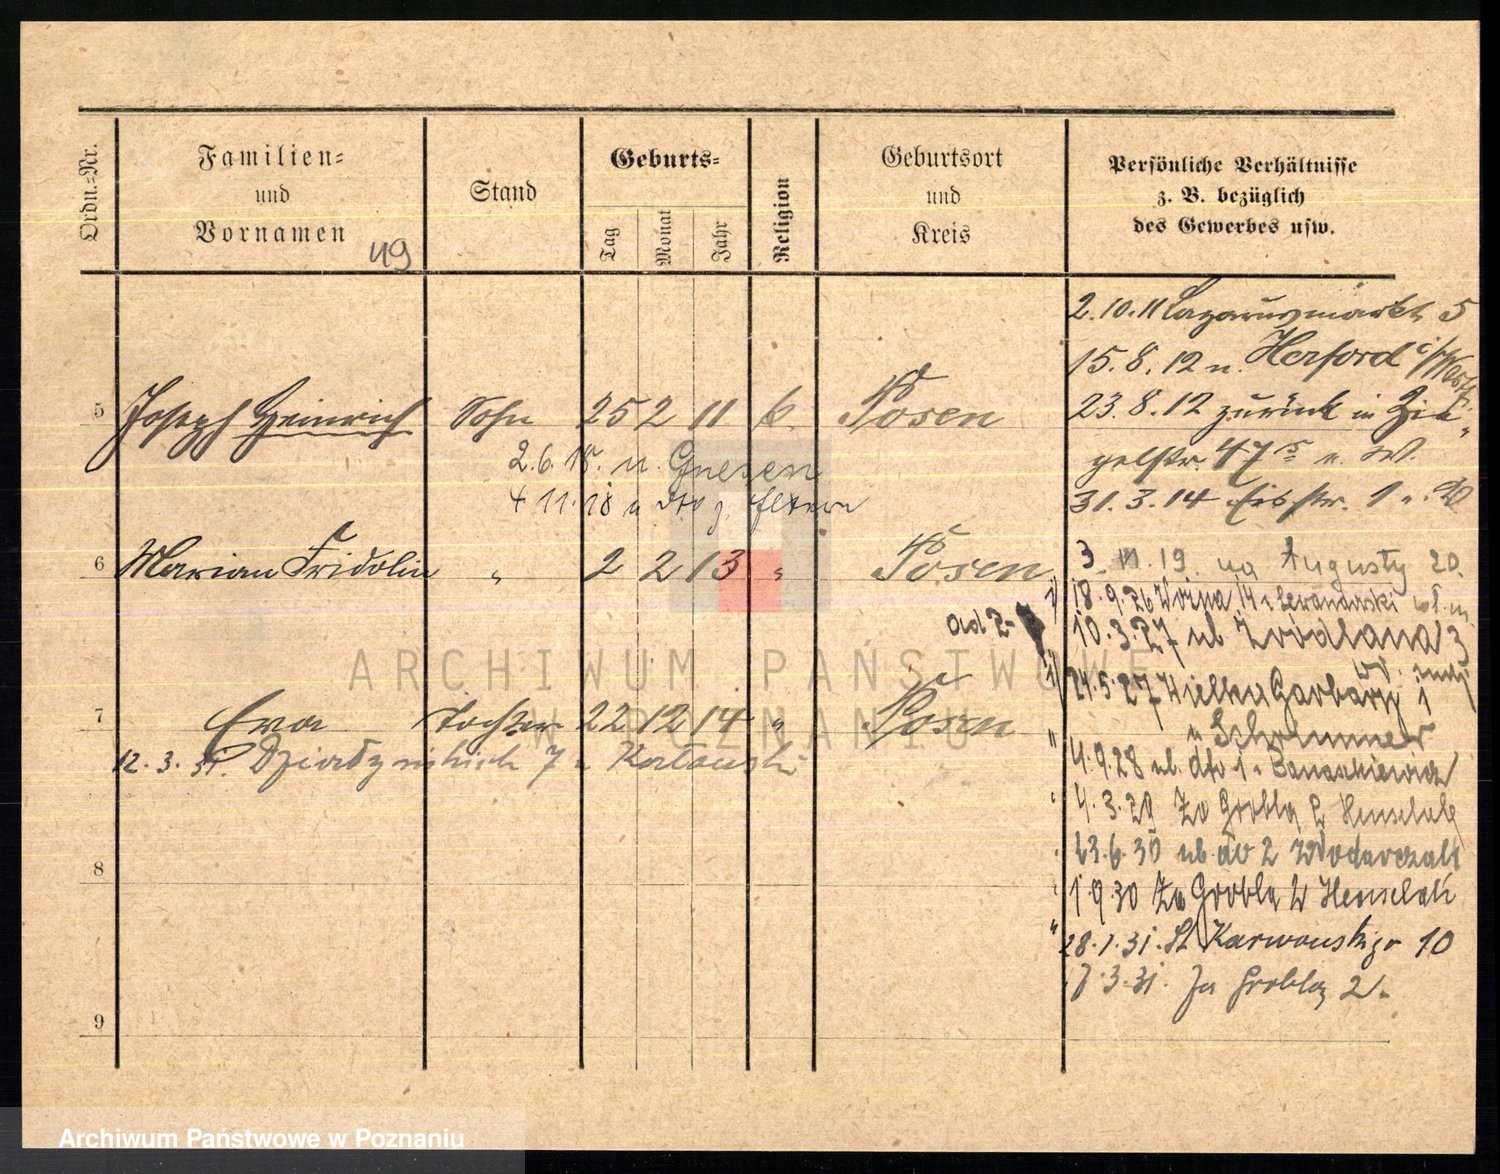 Ordn.-Nr.
Familien-
und
Vornamen
49
Stand
Geburts-
Tag
Monat
Jahr
Religion
Geburtsort
und
Kreis
Persönliche Verhältnisse
z. B. bezüglich
des Gewerbes usw.
2.10.11 Lazarusmarkt 5
15.8.12 n. Herford i/Westf.
5 Joseph Heinrich Sohn 25 2 11 k. Posen
23.8.12 zurück in Zie-
gelstr. 47 b. W.
2.6.18. n. Gnesen
31.3.14 Eibstr. 1
4 11.18 u dto z. Eltern
6 Marian Fridolin " 2 2 13 " Posen
3 11.19. na Augusty 20.
18.9.26 14 Lewandowski
ad 2-
10.3.27 ul Zrodlana 3
24.5.27 Wielka Garbary 1
7 Eva Tochter 22 12 14 " Posen
u Schrammer
12.3.31. Działyńskich 7 u
4.9.28 ul. dto 1 u Banaszkiewicz
4.3.29 Za Groblą 2
23.6.30 ul do 2 Wodarczak
8
1.9.30 Za Groblą 2
28.1.31. Karwowskiego 10
7.3.31. Za Groblą 2.
9
ARCHIWUM PAŃSTWOWE
W POZNANIU
Archiwum Państwowe w Poznaniu